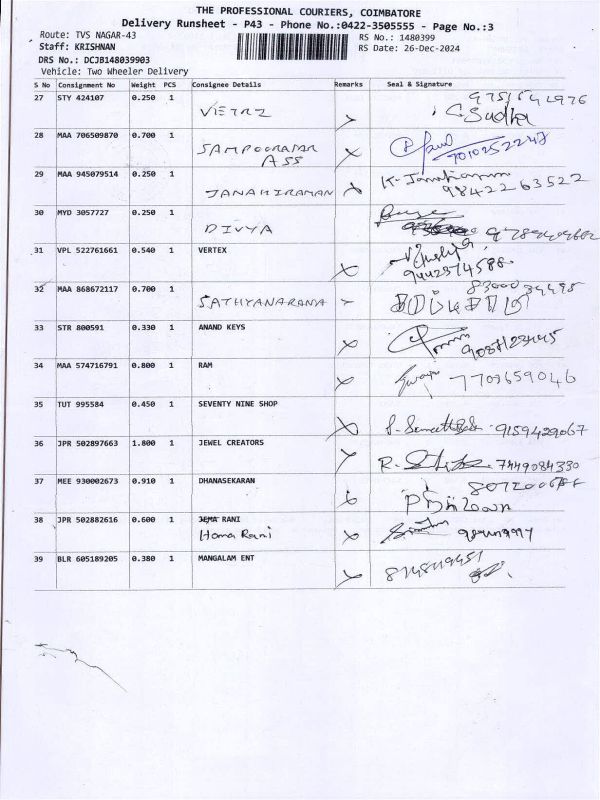 THE PROFESSIONAL COURIERS, COIMBATORE
Delivery Runsheet - P43 - Phone No.:0422-3505555 - Page No.:3
Route: TVS NAGAR-43 RS No.: 1480399
Staff: KRISHNAN RS Date: 26-Dec-2024
DRS No.: DCJB148039903
Vehicle: Two Wheeler Delivery
S No Consignment No Weight PCS Consignee Details Remarks Seal & Signature
27 STY 424107 0.250 1 VIETRZ
28 MAA 706509870 0.700 1 ASS 7010252247
29 MAA 945079514 0.250 1 JANAKIRAMAN K. Janakiraman 9842263522
30 MYD 3057727 0.250 1 DIVYA
31 VPL 522761661 0.540 1 VERTEX 9442574588
32 MAA 868672117 0.700 1 SATHYANARANA
33 STR 800591 0.330 1 ANAND KEYS
34 MAA 574716791 0.800 1 RAM 7709659046
35 TUT 995584 0.450 1 SEVENTY NINE SHOP 9159429067
36 JPR 502897663 1.800 1 JEWEL CREATORS 7449084330
37 MEE 930002673 0.910 1 DHANASEKARAN
38 JPR 502882616 0.600 1 JEMA RANI
Hama Rani
39 BLR 605189205 0.380 1 MANGALAM ENT